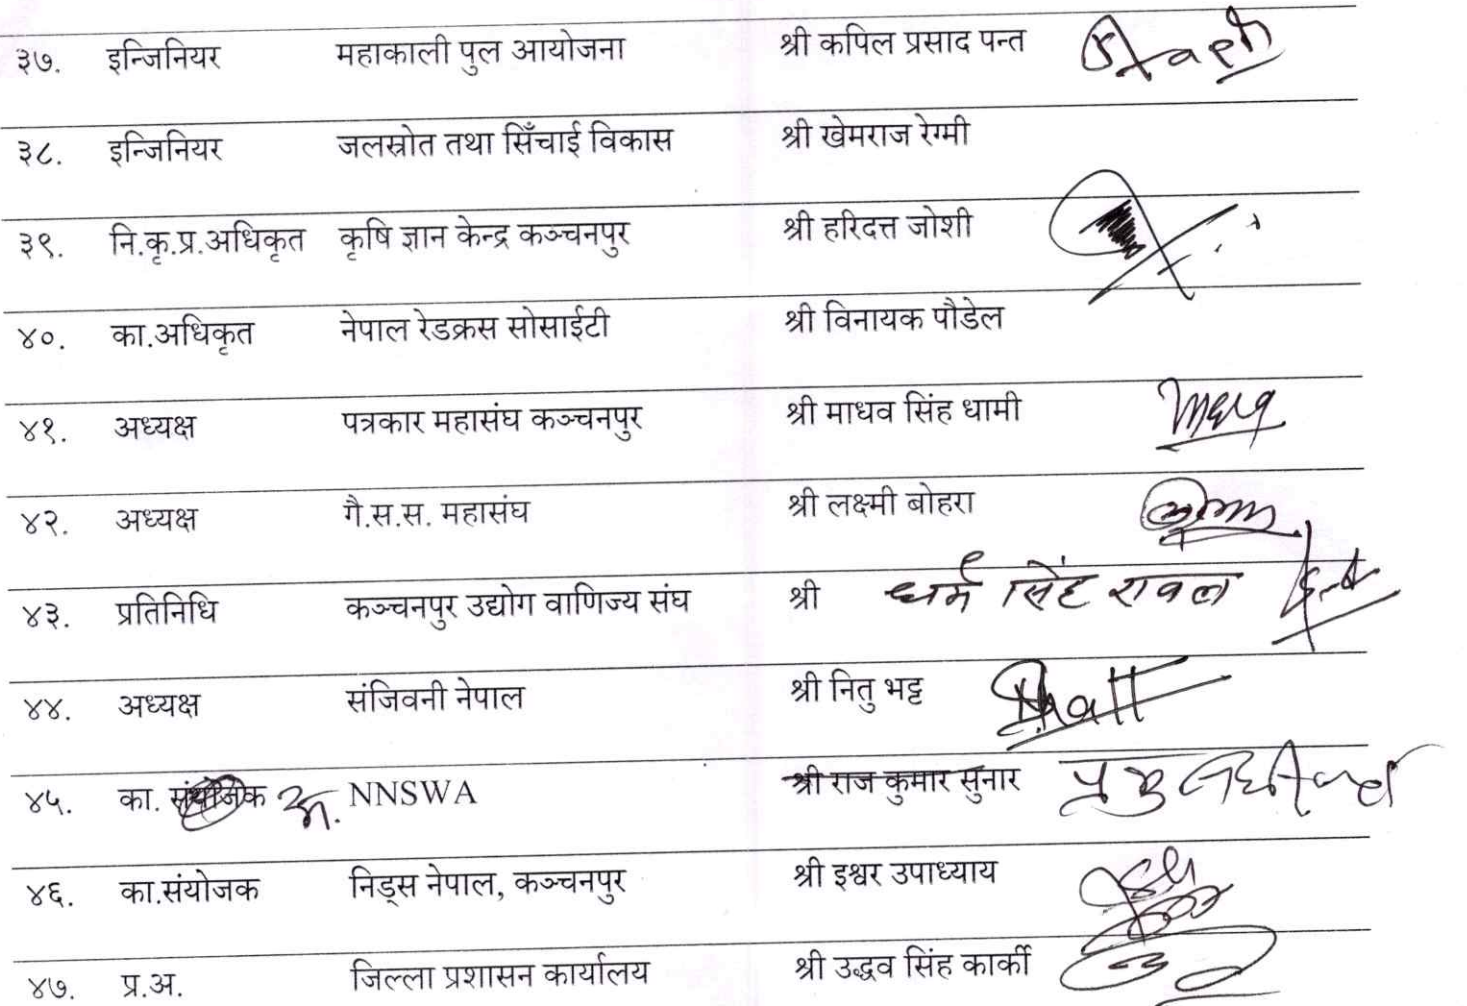 ३७. इन्जिनियर महाकाली पुल आयोजना श्री कपिल प्रसाद पन्त
३८. इन्जिनियर जलस्रोत तथा सिँचाई विकास श्री खेमराज रेग्मी
३९. नि.कृ.प्र.अधिकृत कृषि ज्ञान केन्द्र कञ्चनपुर श्री हरिदत्त जोशी
४०. का.अधिकृत नेपाल रेडक्रस सोसाईटी श्री विनायक पौडेल
४१. अध्यक्ष पत्रकार महासंघ कञ्चनपुर श्री माधव सिंह धामी
४२. अध्यक्ष गै.स.स. महासंघ श्री लक्ष्मी बोहरा
४३. प्रतिनिधि कञ्चनपुर उद्योग वाणिज्य संघ श्री धर्म सिंह रावल
४४. अध्यक्ष संजिवनी नेपाल श्री नितु भट्ट Bhatt
४५. का. संयोजक अ. NNSWA श्री राज कुमार सुनार
४६. का.संयोजक निड्स नेपाल, कञ्चनपुर श्री इश्वर उपाध्याय
४७. प्र.अ. जिल्ला प्रशासन कार्यालय श्री उद्धव सिंह कार्की